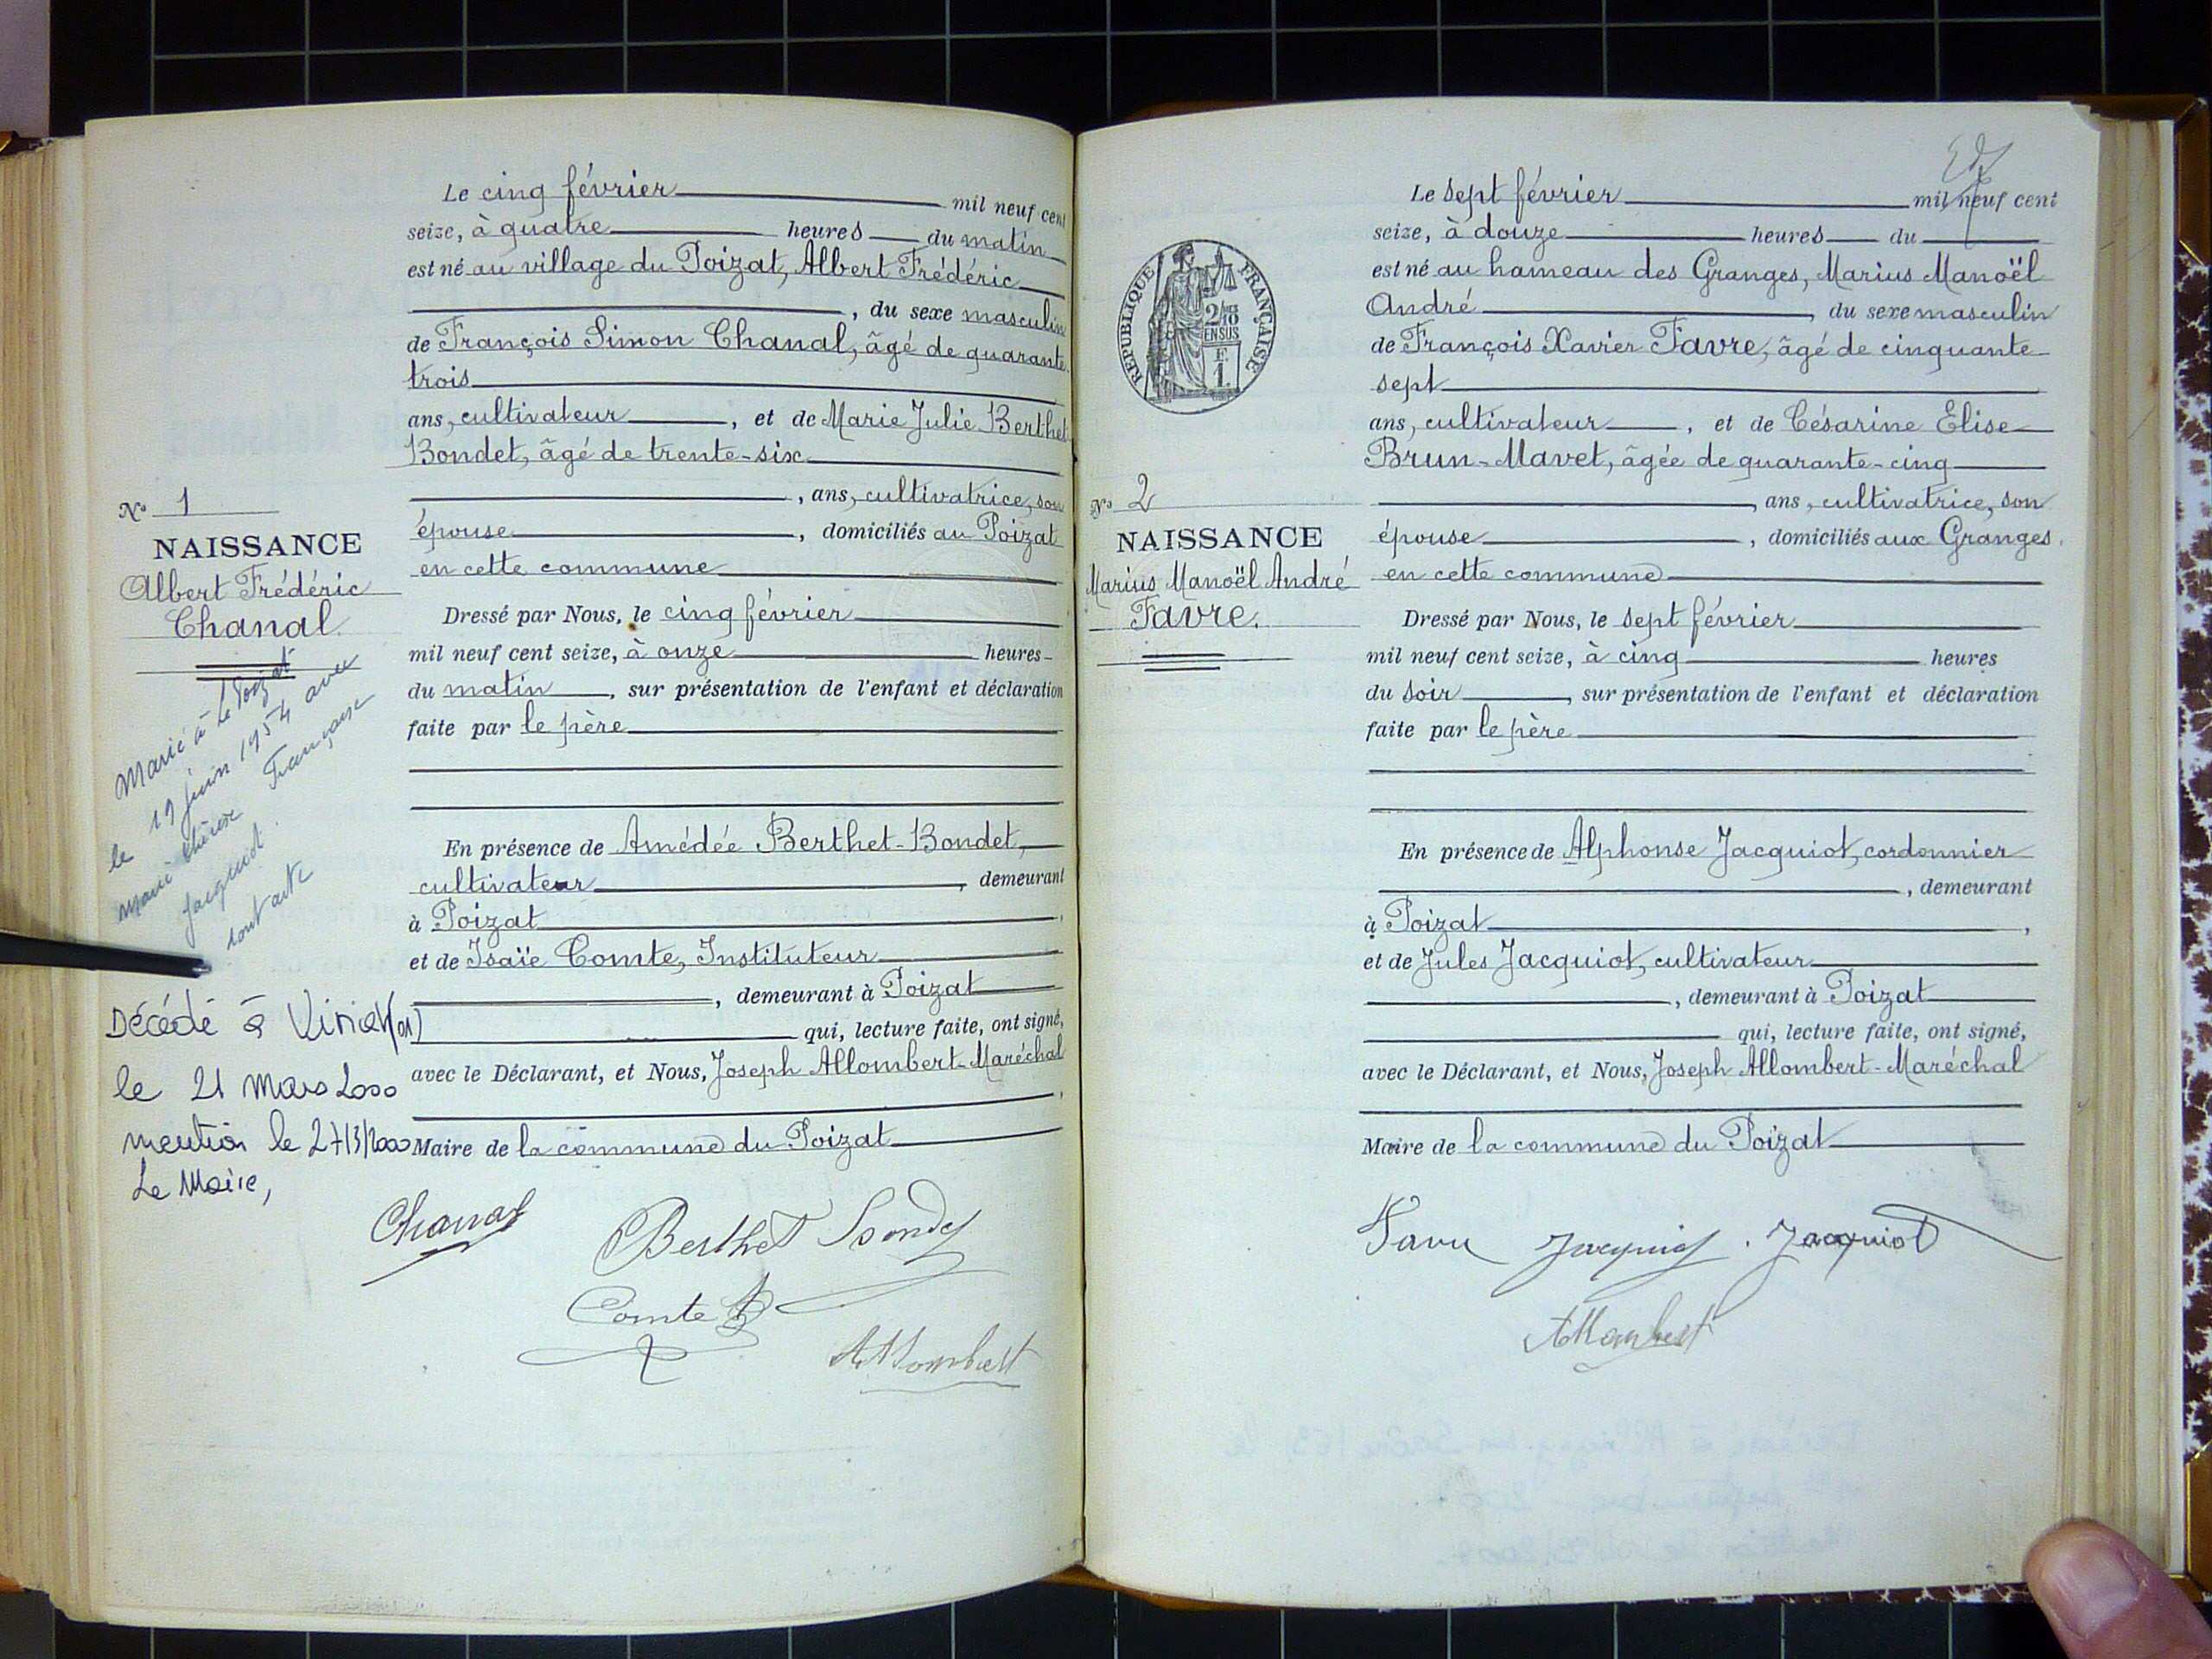 Le cinq février mil neuf cent
seize, à quatre heures du matin
est né au village du Poizat, Albert Frédéric
, du sexe masculin
de François Simon Chanal, âgé de quarante
trois
ans, cultivateur, et de Marie Julie Berthet
Bondet, âgé de trente-six
, ans, cultivatrice, son
épouse, domiciliés au Poizat
en cette commune
Dressé par Nous, le cinq février
mil neuf cent seize, à onze heures
du matin, sur présentation de l'enfant et déclaration
faite par le père
En présence de Amédée Berthet-Bondet,
cultivateur, demeurant
à Poizat,
et de Isaïe Comte, Instituteur
, demeurant à Poizat
qui, lecture faite, ont signé,
avec le Déclarant, et Nous, Joseph Allombert-Maréchal
,
Maire de la commune du Poizat
Chanal
Berthet Bondet
Comte
Allombert
No 1
NAISSANCE
Albert Frédéric
Chanal.
Marié à Le Poizat
le 19 juin 1954 avec
Marie thérèse Françoise
Jacquiot.
Décédé à Viriat (01)
le 21 Mars 2000
mention le 27/3/2000
Le Maire,
Le sept février mil neuf cent
seize, à douze heures du
est né au hameau des Granges, Marius Manoël
André, du sexe masculin
de François Xavier Favre, âgé de cinquante
sept
ans, cultivateur, et de Césarine Elise
Brun-Mavet, âgée de quarante-cinq
, ans, cultivatrice, son
épouse, domiciliés aux Granges,
en cette commune
Dressé par Nous, le sept février
mil neuf cent seize, à cinq heures
du soir, sur présentation de l'enfant et déclaration
faite par le père
En présence de Alphonse Jacquiot, cordonnier
, demeurant
à Poizat,
et de Jules Jacquiot, cultivateur
, demeurant à Poizat
qui, lecture faite, ont signé,
avec le Déclarant, et Nous, Joseph Allombert-Maréchal
Maire de la commune du Poizat
Favre Jacquiot. Jacquiot
Allombert
RÉPUBLIQUE FRANÇAISE
2/10
EN SUS
F.
1.
No 2
NAISSANCE
Marius Manoël André
Favre.